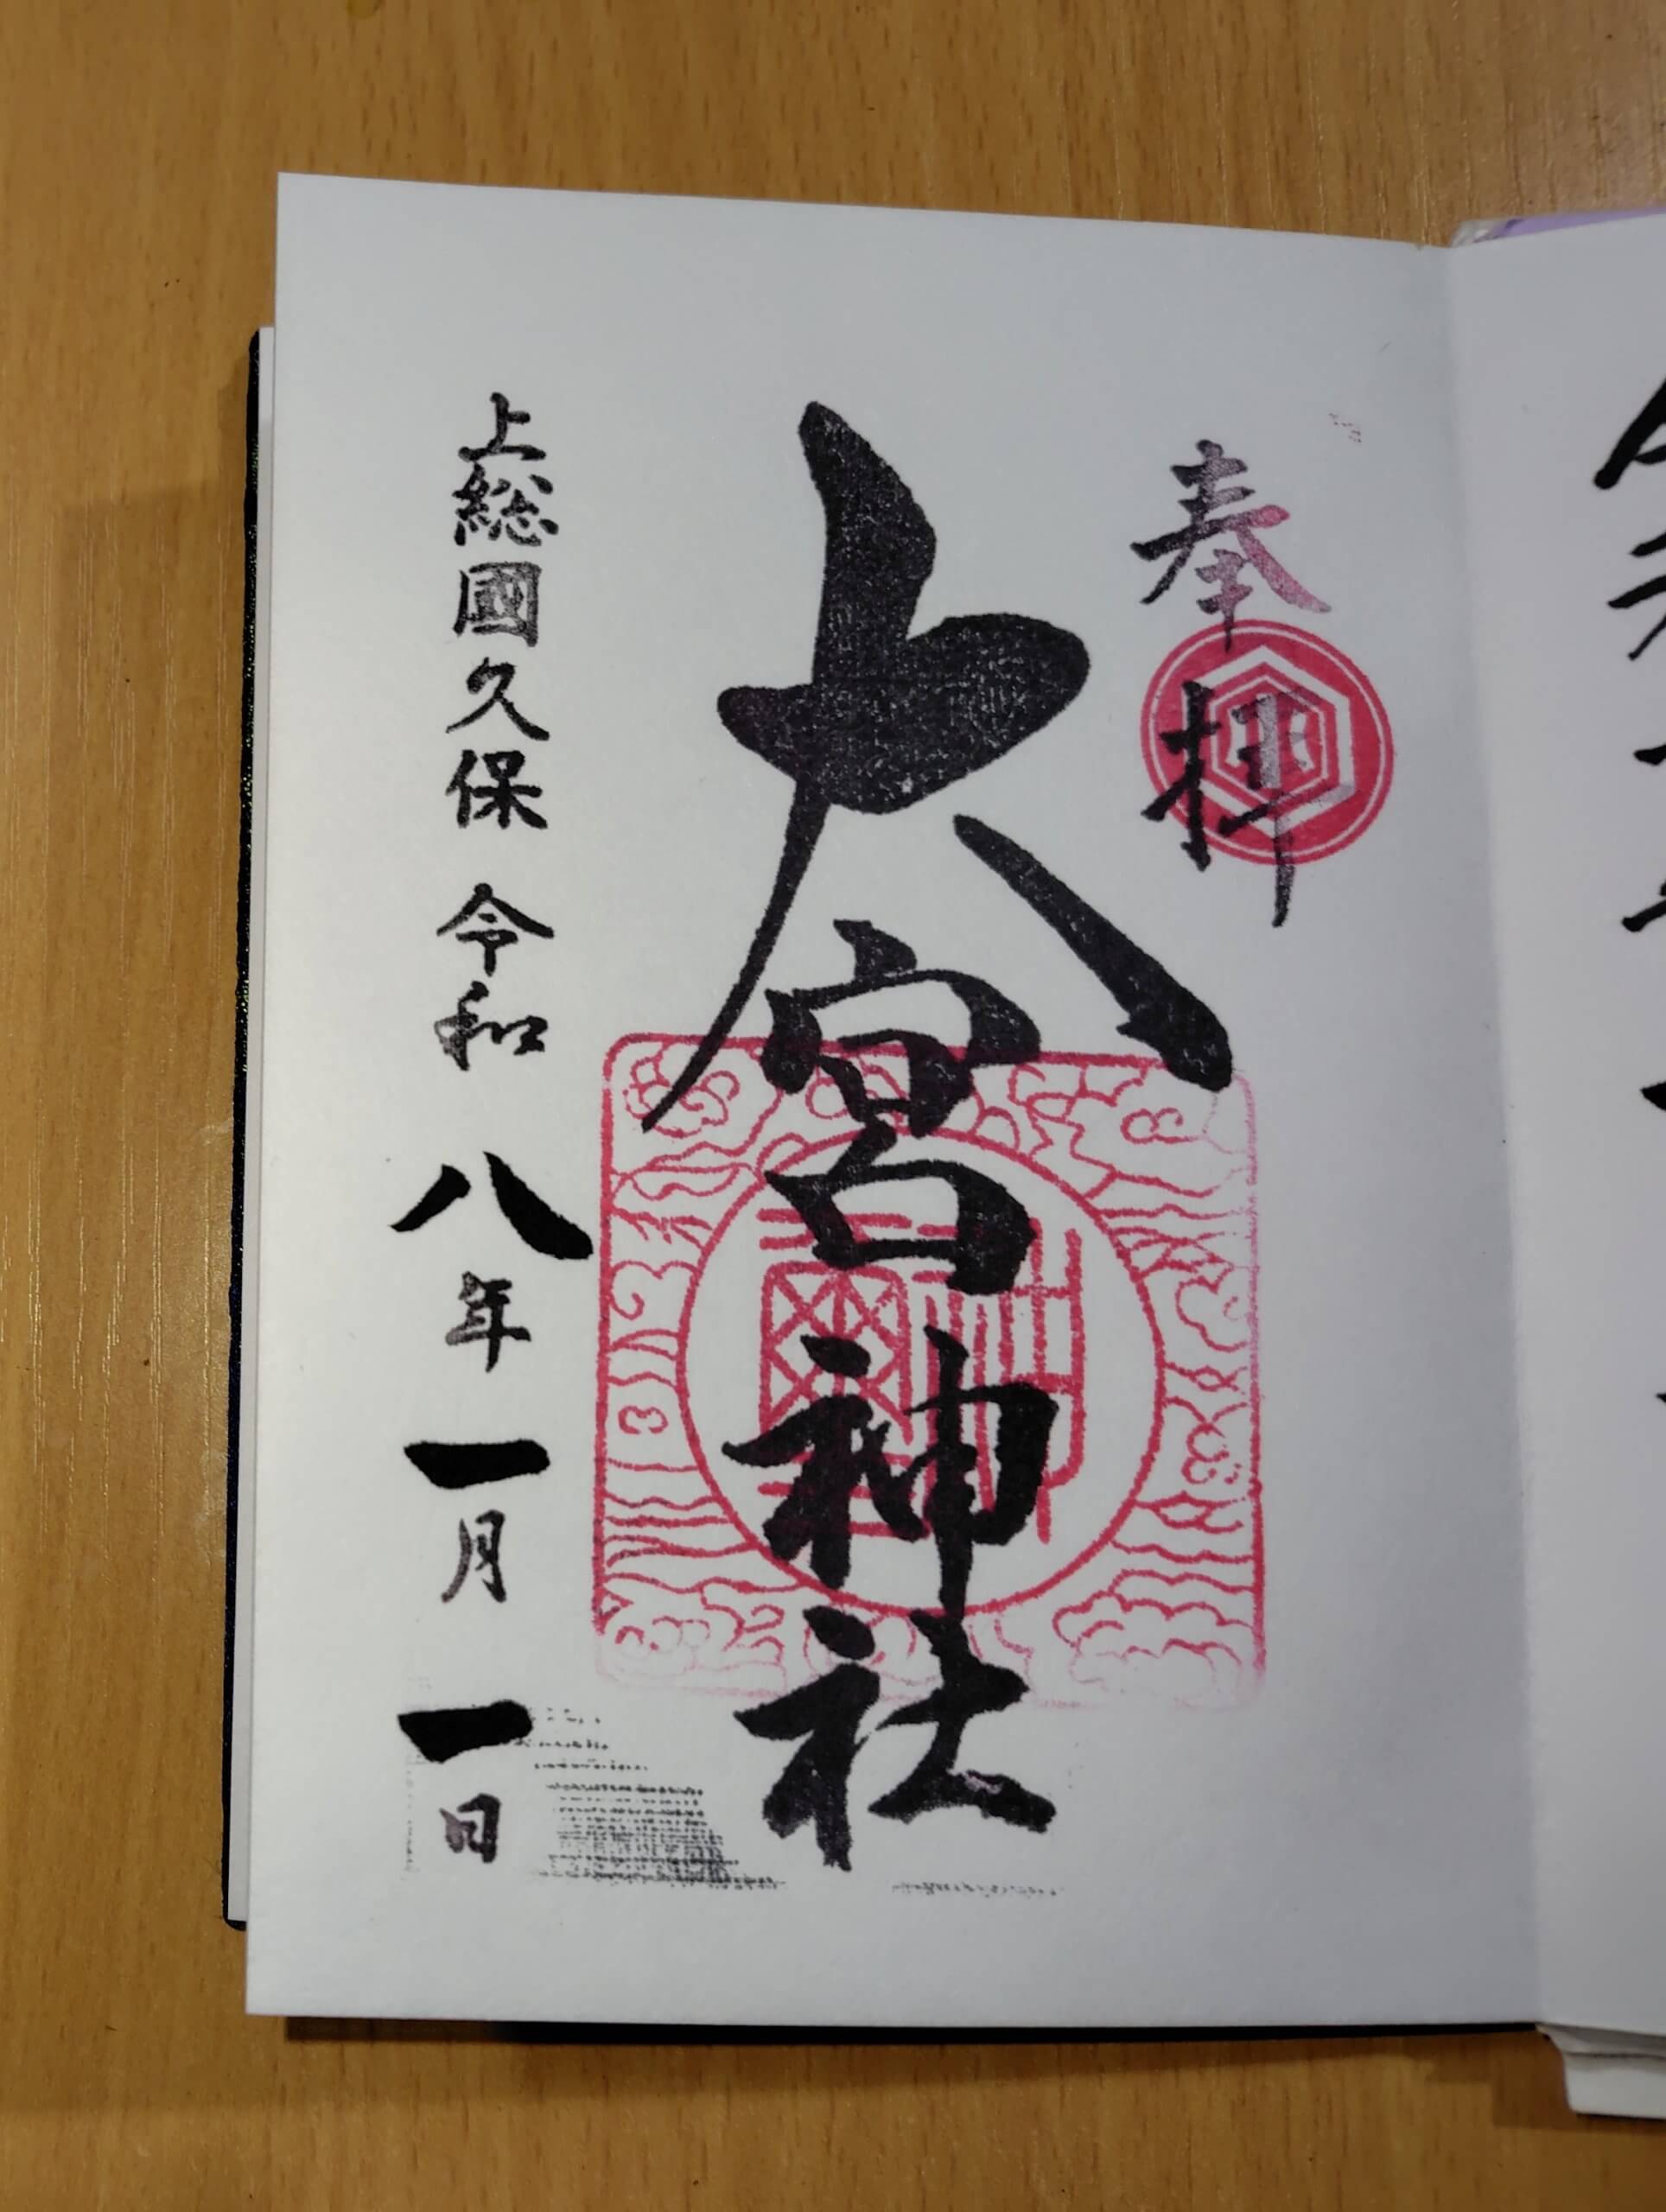 奉拝
大宮神社
上総國久保 令和八年一月一日